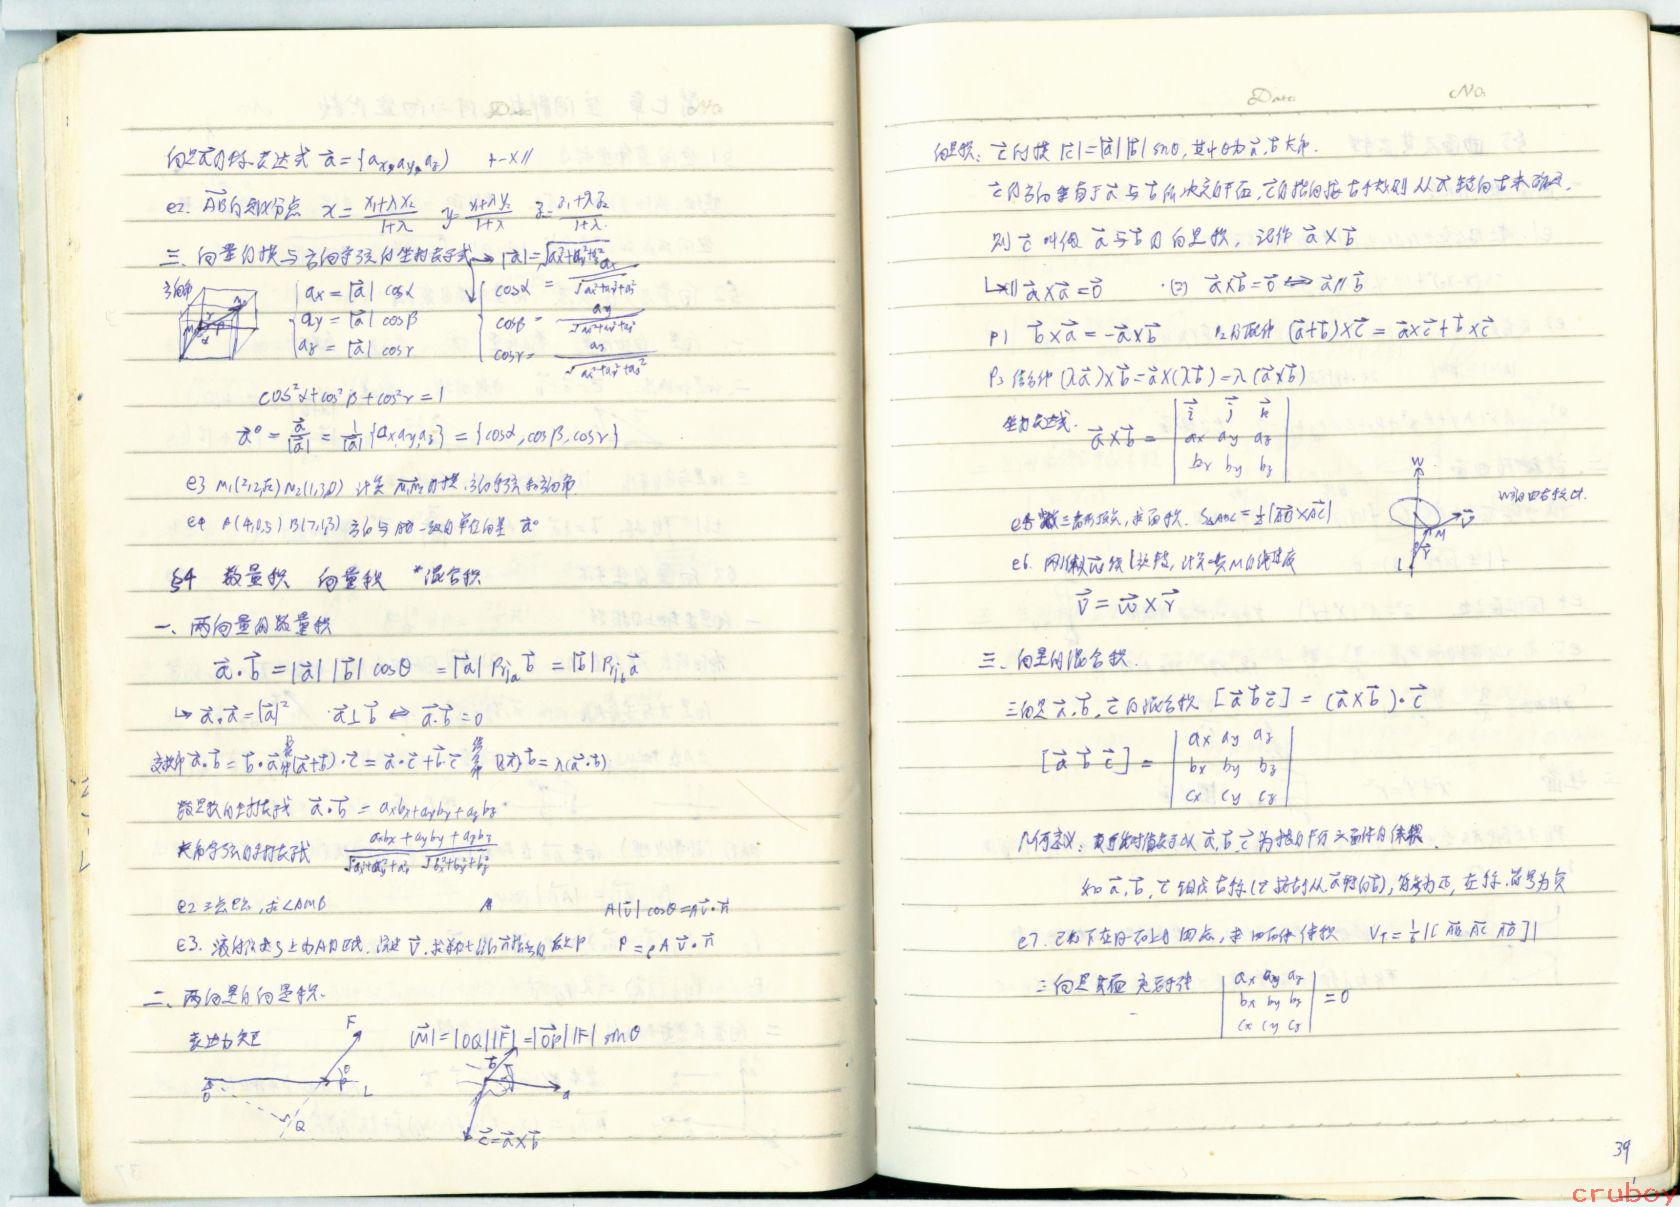 Date No.
向量a⃗的坐标表达式 a⃗ = {ax, ay, az} +-×∥
e2. AB的定比分点 x = (x₁+λx₂)/(1+λ) y = (y₁+λy₂)/(1+λ) z = (z₁+λz₂)/(1+λ)
三、向量的模与方向余弦的坐标表示式 → |a⃗| = √(ax²+ay²+az²)
方向角
ax = |a⃗| cosα cosα = ax/√(ax²+ay²+az²)
ay = |a⃗| cosβ cosβ = ay/√(ax²+ay²+az²)
az = |a⃗| cosγ cosγ = az/√(ax²+ay²+az²)
cos²α+cos²β+cos²γ=1
a⃗° = a⃗/|a⃗| = 1/|a⃗| {ax, ay, az} = {cosα, cosβ, cosγ}
e3 M₁(2,2,√2) M₂(1,3,0) 计算 M₁M₂的模、方向余弦和方向角
e4 A(4,0,5) B(7,1,3) 方向与AB一致的单位向量 a⃗°
§4 数量积 向量积 *混合积
一、两向量的数量积
a⃗·b⃗ = |a⃗| |b⃗| cosθ = |a⃗| Prjₐ b⃗ = |b⃗| Prj_b a⃗
↳ a⃗·a⃗ = |a⃗|² ·a⃗⊥b⃗ ⇔ a⃗·b⃗ = 0
交换律 a⃗·b⃗ = b⃗·a⃗ 分配律 (a⃗+b⃗)·c⃗ = a⃗·c⃗+b⃗·c⃗ 结合律 (λa⃗)·b⃗ = λ(a⃗·b⃗)
数量积的坐标表示式 a⃗·b⃗ = axbx+ayby+azbz
夹角余弦的坐标表示式 (axbx+ayby+azbz)/(√(ax²+ay²+az²) √(bx²+by²+bz²))
e2 三点已知, 求∠AMB A A|v⃗| cosθ = Av⃗·n⃗
e3. 液体流过 上面积A的区域, 流速 v⃗, P P = ρA v⃗·n⃗
二、两向量的向量积.
表达力矩 |M⃗| = |OQ||F⃗| = |OP⃗||F| sinθ
F
O P θ L
Q
b⃗ a
c⃗ = a⃗×b⃗
Date No.
向量积: c⃗的模 |c⃗| = |a⃗||b⃗| sinθ, 其中θ为a⃗,b⃗夹角.
c⃗的方向垂直于a⃗与b⃗所决定的平面, c⃗的指向按右手规则从a⃗转向b⃗来确定,
则 c⃗ 叫做 a⃗与b⃗的向量积, 记作 a⃗×b⃗
↳(1) a⃗×a⃗ = 0⃗ ·(2) a⃗×b⃗ = 0⃗ ⇔ a⃗∥b⃗
P1 b⃗×a⃗ = -a⃗×b⃗ P2 分配律 (a⃗+b⃗)×c⃗ = a⃗×c⃗+b⃗×c⃗
P3 结合律 (λa⃗)×b⃗ = a⃗×(λb⃗) = λ(a⃗×b⃗)
坐标表达式. a⃗×b⃗ =
i⃗ j⃗ k⃗
ax ay az
bx by bz
三角形顶点, 求面积. S△ABC = ½|AB⃗×AC⃗|
e6. 刚体以 ω 绕 l 旋转, 计算一点M的线速度
v⃗ = ω⃗×r⃗
W v⃗ M r⃗ L
三、向量的混合积.
三向量 a⃗, b⃗, c⃗的混合积 [a⃗ b⃗ c⃗] = (a⃗×b⃗)·c⃗
[a⃗ b⃗ c⃗] =
ax ay az
bx by bz
cx cy cz
几何意义: 绝对值表示以 a⃗, b⃗, c⃗ 为棱的平行六面体的体积.
如 a⃗, b⃗, c⃗ 组成右手系(c⃗按右手从a⃗转向b⃗), 符号为正, 左手系, 符号为负
e7. 已知不在同一面上的四点, 求四面体体积 V_T = ⅙|[AB⃗ AC⃗ AD⃗]|
三向量共面 充要条件
ax ay az
bx by bz = 0
cx cy cz
39
cruboy